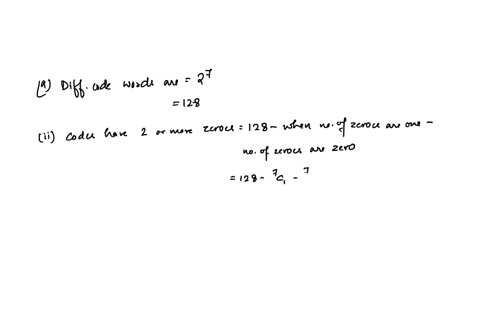 (a) Diff. code words are = 2⁷
= 128
(ii) codes have 2 or more zeroes = 128 - when no. of zeroes are one -
no. of zeroes are zero
= 128 - ⁷C₁ - ⁷